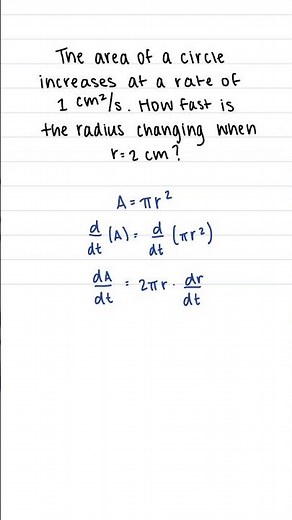 The area of a circle
increases at a rate of
1 cm²/s. How fast is
the radius changing when
r=2 cm?
A=πr²
d/dt (A) = d/dt (πr²)
dA/dt = 2πr · dr/dt